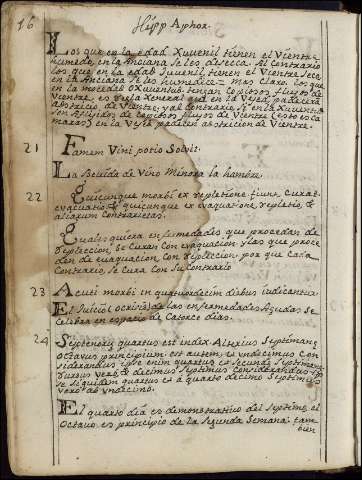 16 Hipp Aphor.
Los que en la edad Xuvenil tienen el Vientre
humedo, en la Anciana se les desecca. Al contrario
los que en la edad Juvenil, tienen el Vientre seco
en la Anciana se les humedice = mas claro. los que
en la mocedad o Xuventud, tengan copiosos fluxos de
Vientre, es regla general que en la Vejes padeceran
abstriccion de Vientre, y al contrario, si en la Xuventud
son afligidos de copiosos fluxos de Vientre (esto es la
mayor) en la Vejes padeces abstriccion de Vientre.
21 Famem Vini potio Solvit.
La bevida de Vino Minora la hambre.
22 Quicunque morbi ex repletione fiunt, Curat
evacuatio, & quicunque ex evaquatione, repletio, &
aliorum contrarietas.
Qualesquiera enfermedades que procedan de
repleccion, se curan con evaquacion y las que proce
den de evaquacion, con repleccion. por que cada
Contrario, se cura con su Contrario
23 Acuti morbi in quatuordecim diebus iudicantur
El Juicio
de las enfermedades Agudas se
celebra en espacio de Catorce dias.
24 Septenorum quartus est index Alterius Septimanæ
octavus principium. est autem, et undecimus con
siderandus ipse enim quartus est secundæ Septimanæ
rursus vero, & decimus Septimus considerandus ip
se siquidem quartus est á quarto decimo Septimus
vero ab undecimo.
El quarto dia es demonstrativo del Septimo, el
Octavo, es principio de la Segunda Semana: tam
bien